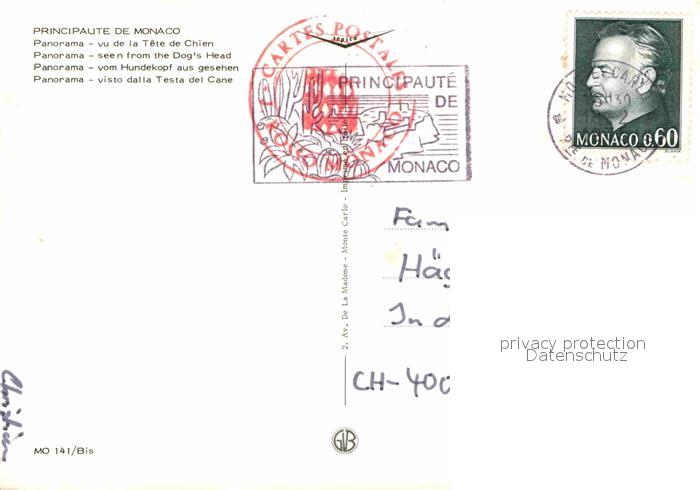 PRINCIPAUTE DE MONACO
Panorama - vu de la Tête de Chien
Panorama - seen from the Dog's Head
Panorama - vom Hundekopf aus gesehen
Panorama - visto dalla Testa del Cane
CARTES POSTALES
MONACO
PRINCIPAUTÉ
DE
MONACO
MONACO 0,60
PTE DE MONACO
2, Av. De La Madone - Monte Carlo -
Fam
Häg
In d
CH-400
privacy protection
Datenschutz
Christian
GVB
MO 141/Bis